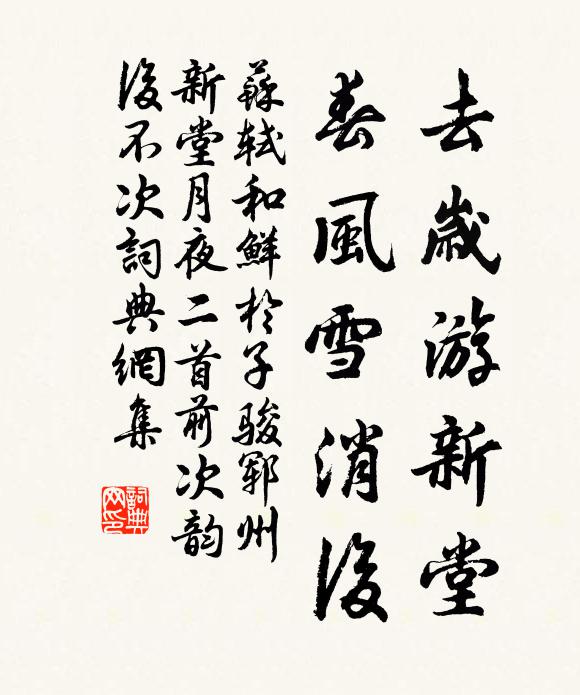 去歲游新堂
春風雪消後
蘇軾和鮮於子駿鄆州
新堂月夜二首前次韵
後不次詞典網集
詞典網印